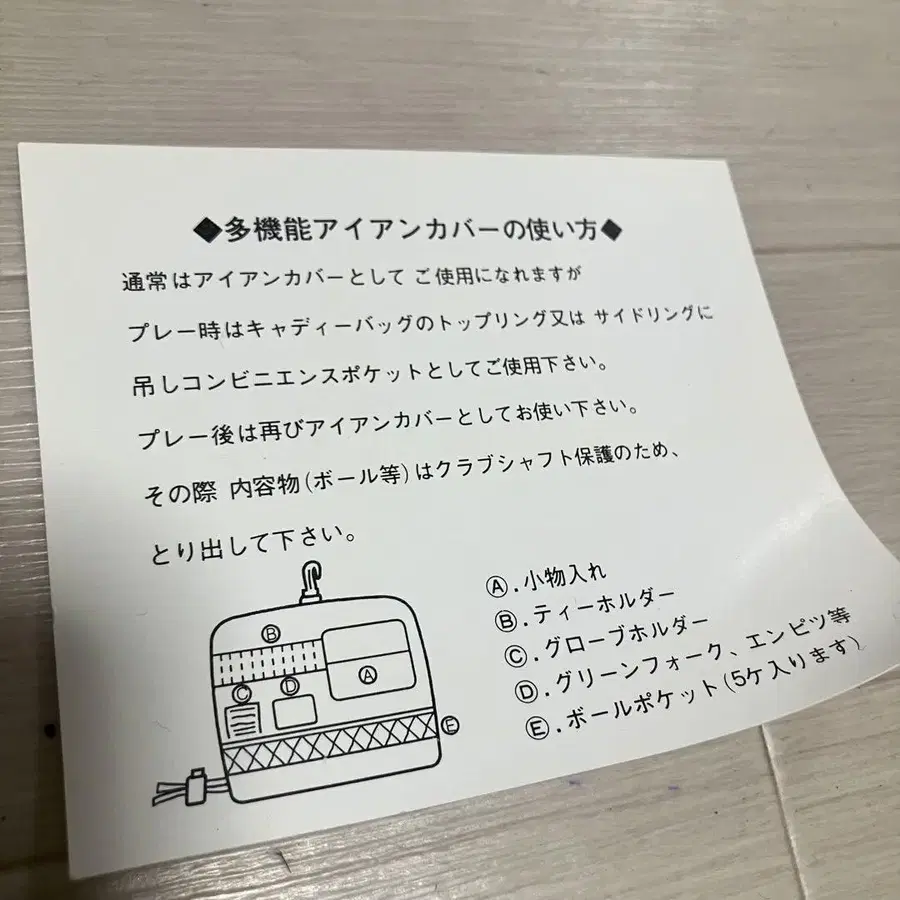 ◆多機能アイアンカバーの使い方◆
通常はアイアンカバーとして ご使用になれますが
プレー時はキャディーバッグのトップリング又は サイドリングに
吊しコンビニエンスポケットとしてご使用下さい。
プレー後は再びアイアンカバーとしてお使い下さい。
その際 内容物(ボール等)はクラブシャフト保護のため、
とり出して下さい。
Ⓐ.小物入れ
Ⓑ.ティーホルダー
Ⓒ.グローブホルダー
Ⓓ.グリーンフォーク、エンピツ等
Ⓔ.ボールポケット(5ケ入ります)
Ⓑ
Ⓐ
Ⓒ
Ⓓ
Ⓔ